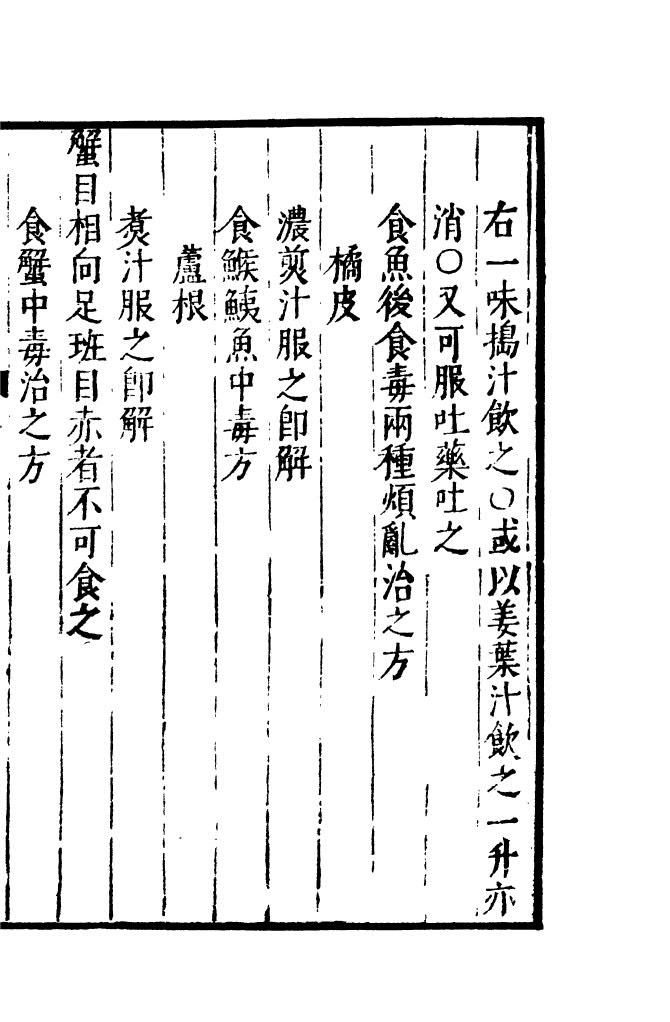 右一味搗汁飲之○或以姜葉汁飲之一升亦
消○又可服吐藥吐之
食魚後食毒兩種煩亂治之方
橘皮
濃煎汁服之即解
食鯸鮧魚中毒方
蘆根
煑汁服之即解
蟹目相向足班目赤者不可食之
食蟹中毒治之方